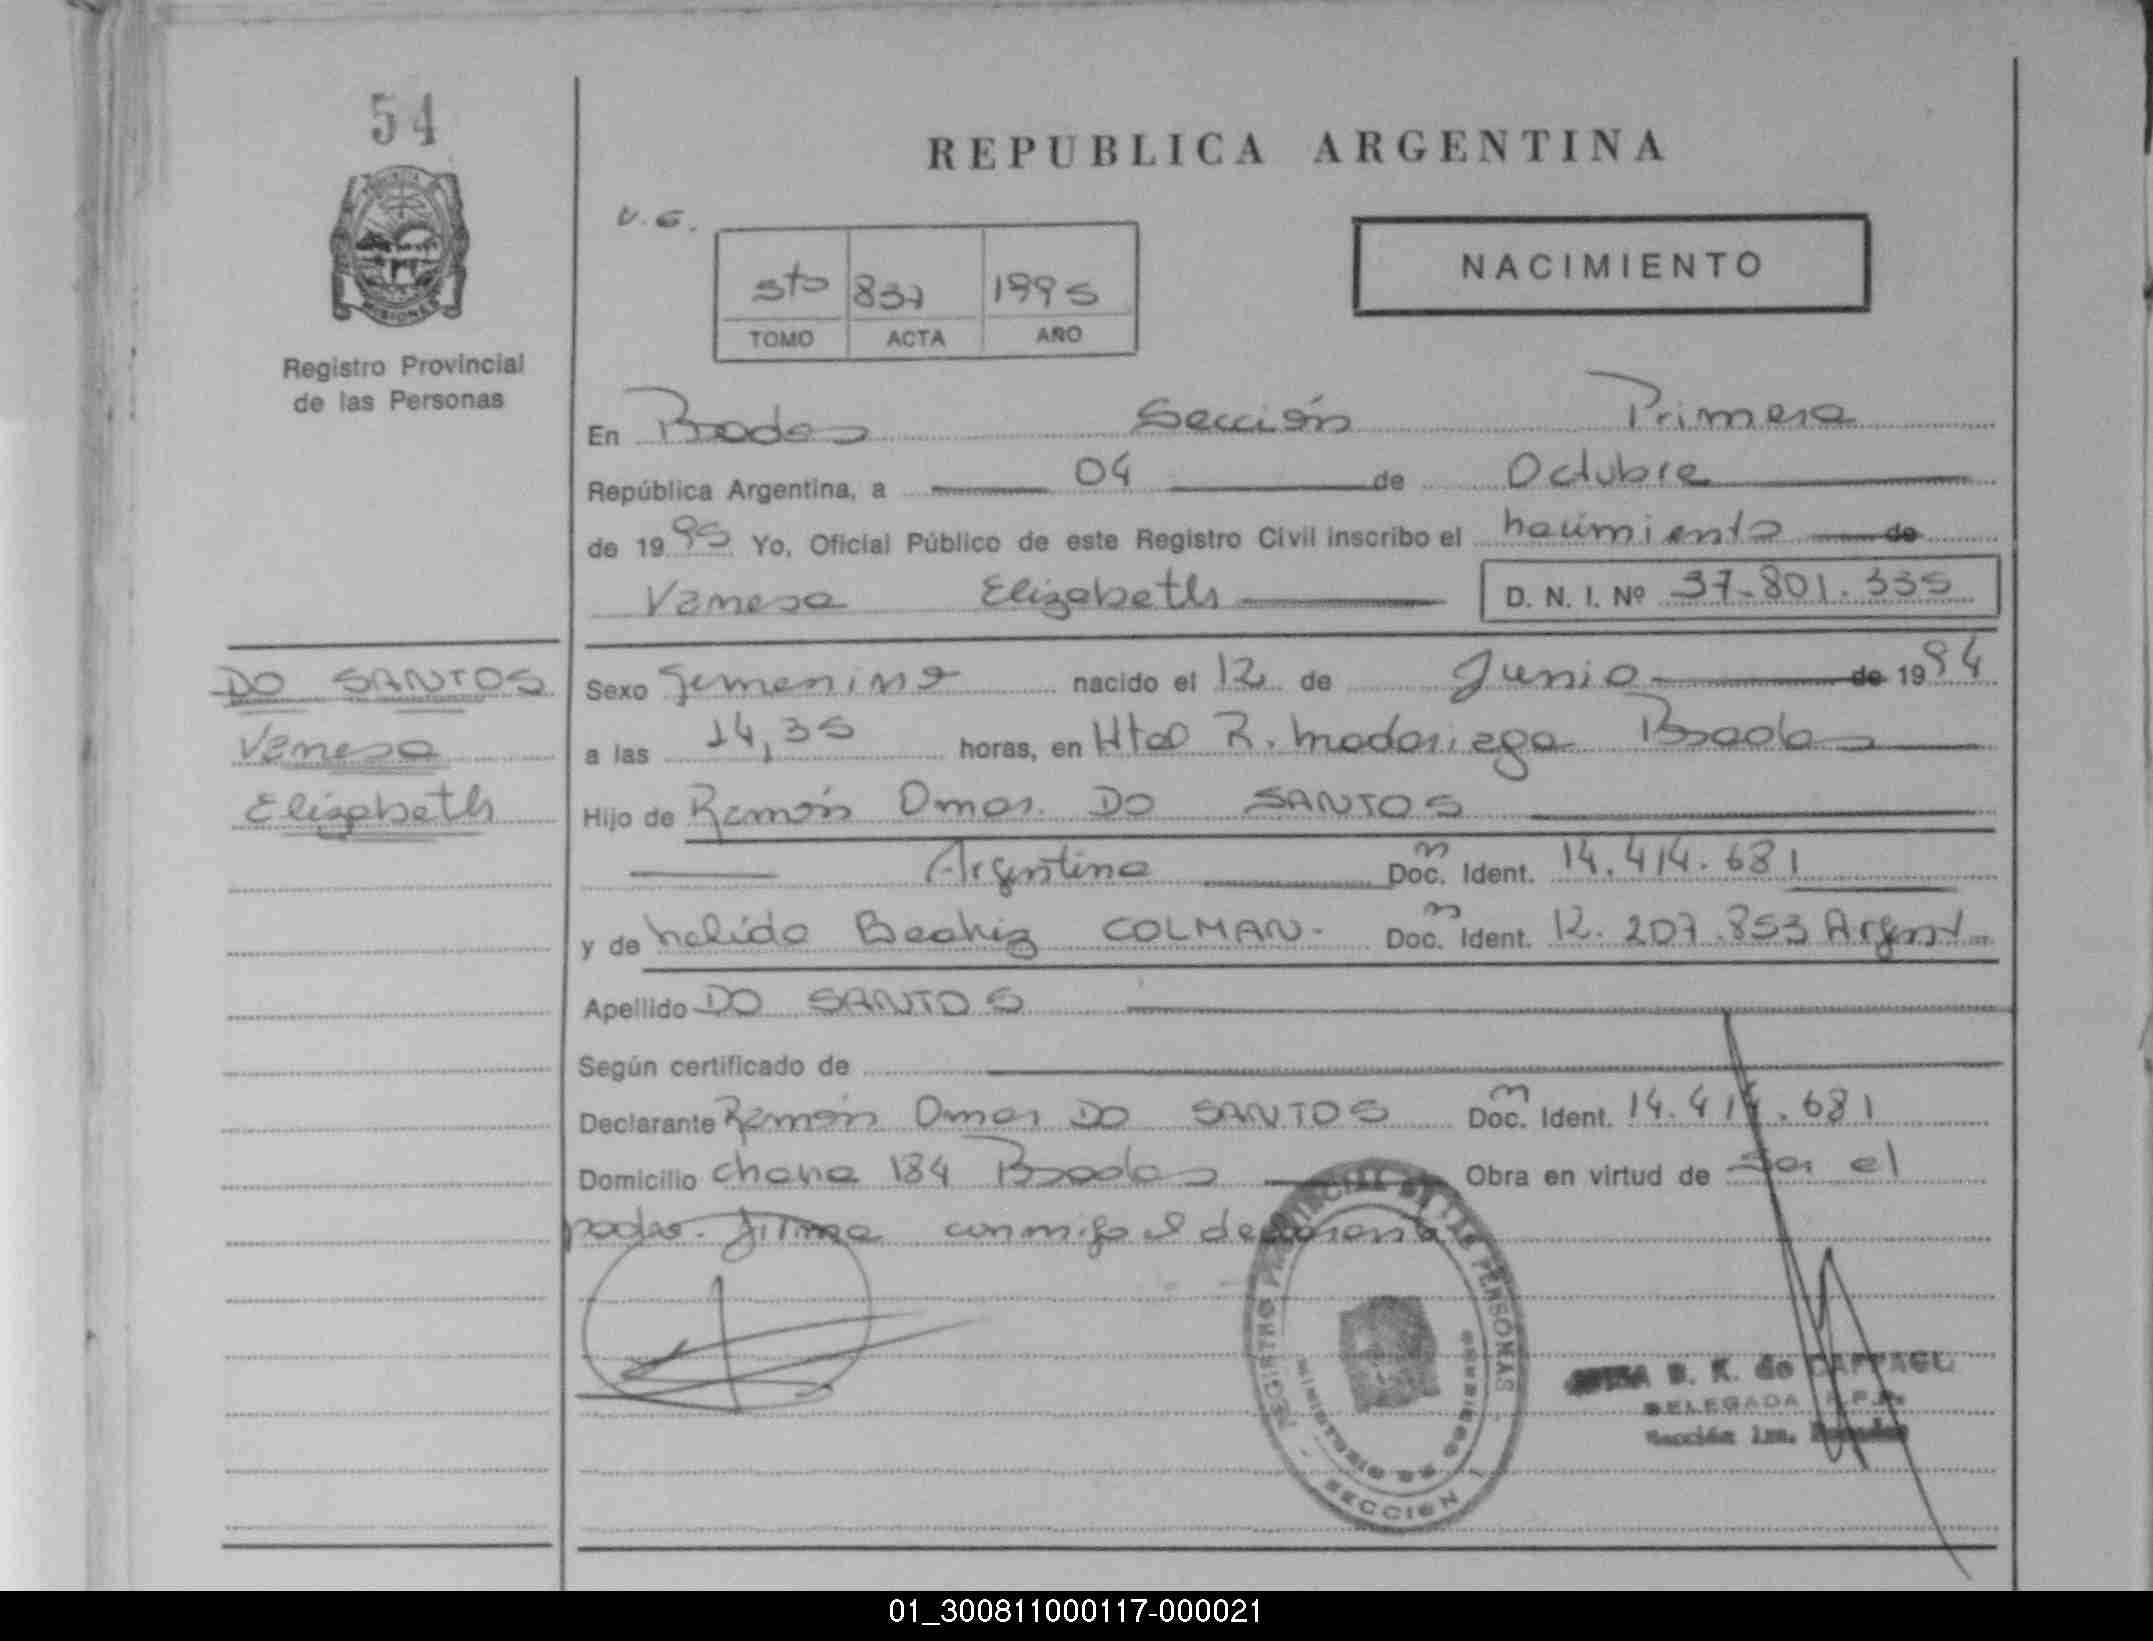 54
REPUBLICA ARGENTINA
PROVINCIA
MISIONES
V.E.
NACIMIENTO
5to 837 1995
TOMO ACTA AÑO
Registro Provincial
de las Personas
En Psadas Sección Primera
República Argentina, a 04 de Octubre
de 1995 Yo, Oficial Público de este Registro Civil inscribo el nacimiento de
Vanesa Elizabeth D. N. I. Nº 37.801.335
DO SANTOS
Vanesa
Elizabeth
Sexo Femenino nacido el 12 de Junio de 1994
a las 14,35 horas, en Htal R. Madariaga Psadas
Hijo de Ramón Omar DO SANTOS
Argentino Doc. Ident. 14.414.681
y de Nélida Beatriz COLMAN- Doc. Ident. 12.207.853 Argent
Apellido DO SANTOS
Según certificado de
Declarante Ramón Omar DO SANTOS Doc. Ident. 14.414.681
Domicilio chacra 184 Psadas Obra en virtud de Ser el
padre. Firma conmigo el declarante
REGISTRO PROVINCIAL DE LAS PERSONAS
MINISTERIO DE GOBIERNO
SECCION 1
B. K. de
DELEGADA R.P.P.
Sección 1ra. Posadas
01_300811000117-000021